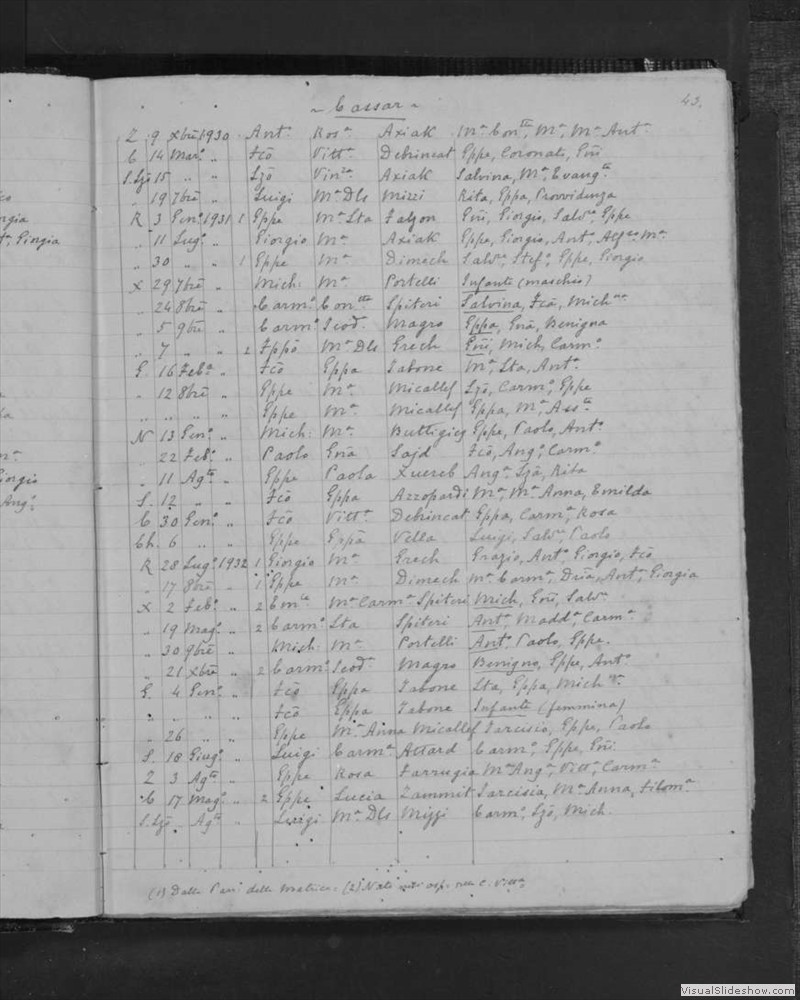 ~ Cassar ~
43.
Z 9 Xbre 1930 Antº Rosª Axiak Mª Conttª, Mª, Mª Antª
C 14 Marº „ Fcõ Vittª Debrincat Eppe, Coronato, Gñi
S. Lzõ 15 „ „ Lzõ Vinzª Axiak Salvina, Mª Evangtª
„ 19 7bre „ Luigi Mª Dls Mizzi Rita, Eppa, Provvidenza
R 3 Genº 1931 1 Eppe Mª Sta Falzon Gñi, Giorgio, Salvª, Eppe
„ 11 Lugº „ Giorgio Mª Axiak Eppe, Giorgio, Antº, Mª
„ 30 „ „ 1 Eppe Mª Dimech Salvª, Stefº, Eppe, Giorgio
X 29 7bre „ Mich: Mª Portelli Infante (maschio)
„ 24 8bre „ Carmº Contta Spiteri Salvina, Fcã, Michna
„ 5 9bre „ Carmº Teodª Magro Eppa, Gñã, Benigna
„ 7 „ „ 2 Fppõ Mª Dls Grech Gñi, Mich, Carmº
G. 16 Febº „ Fcõ Eppa Tabone Mª, Sta, Antª
„ 12 8bre „ Eppe Mª Micallef Lzõ, Carmº, Eppe
„ „ „ „ Eppe Mª Micallef Eppa, Mª, Assta
N 13 Genº „ Mich: Mª Buttigieg Eppe, Paolo, Antº
„ 22 Febº „ Paolo Gñã Sajd Fcõ, Angº, Carmº
„ 11 Agto „ Eppe Paola Xuereb Angª, Lzã, Rita
S. 12 „ „ Fcõ Eppa Azzopardi Mª, Mª Anna, Emilda
C 30 Genº „ Fcõ Vittª Debrincat Eppa, Carmª, Rosa
Ch. 6 „ „ Eppe Eppa Vella Luigi, Salvº, Paolo
R 28 Lugº 1932 1 Giorgio Mª Grech Grazio, Antº, Giorgio, Fcõ
„ 17 8bre „ 1 Eppe Mª Dimech Mª Carmª, Dña, Antª, Giorgia
X 2 Febº „ 2 Emle Mª Carmª Spiteri Mich, Gñi, Salvº
„ 19 Magº „ 2 Carmº Sta Spiteri Antª, Maddª, Carmª
„ 30 9bre „ Mich: Mª Portelli Antº, Paolo, Eppe.
„ 21 Xbre „ 2 Carmº Teodª Magro Benigno, Eppe, Antº
G. 4 Genº „ Fcõ Eppa Tabone Sta, Eppa, Michna
„ „ „ „ Fcõ Eppa Tabone Infante (femmina)
„ 26 „ „ Eppe Mª Anna Micallef Tarcisio, Eppe, Paolo
S. 18 Giugº „ Luigi Carmª Attard Carmº, Eppe, Gñi
Z 3 Agto „ Eppe Rosa Farrugia Mª Angª, Vittª, Carmª
C 17 Magº „ 2 Eppe Lucia Zammit Tarcisia, Mª Anna, Filomª
S. Lzõ „ Agto „ Luigi Mª Dls Mizzi Carmº, Lzõ, Mich.
(1) Dalla Parr. della Matrice. (2) Nati
VisualSlideshow.com